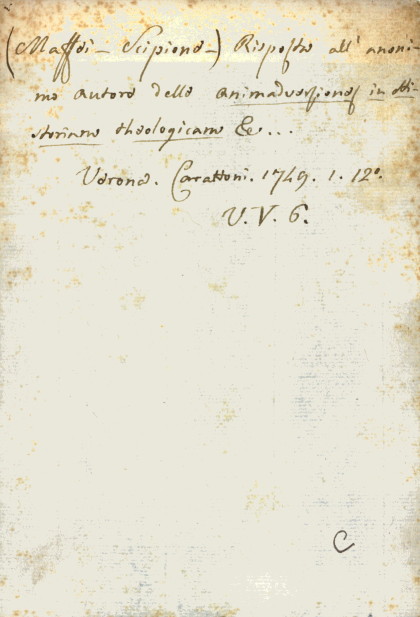 (Maffei - Scipione -) Risposta all' anoni-
mo autore delle animadversiones in Hi-
storiam theologicam &c...
Verona. Carattoni. 1749. 1. 12°.
V. V. 6.
C